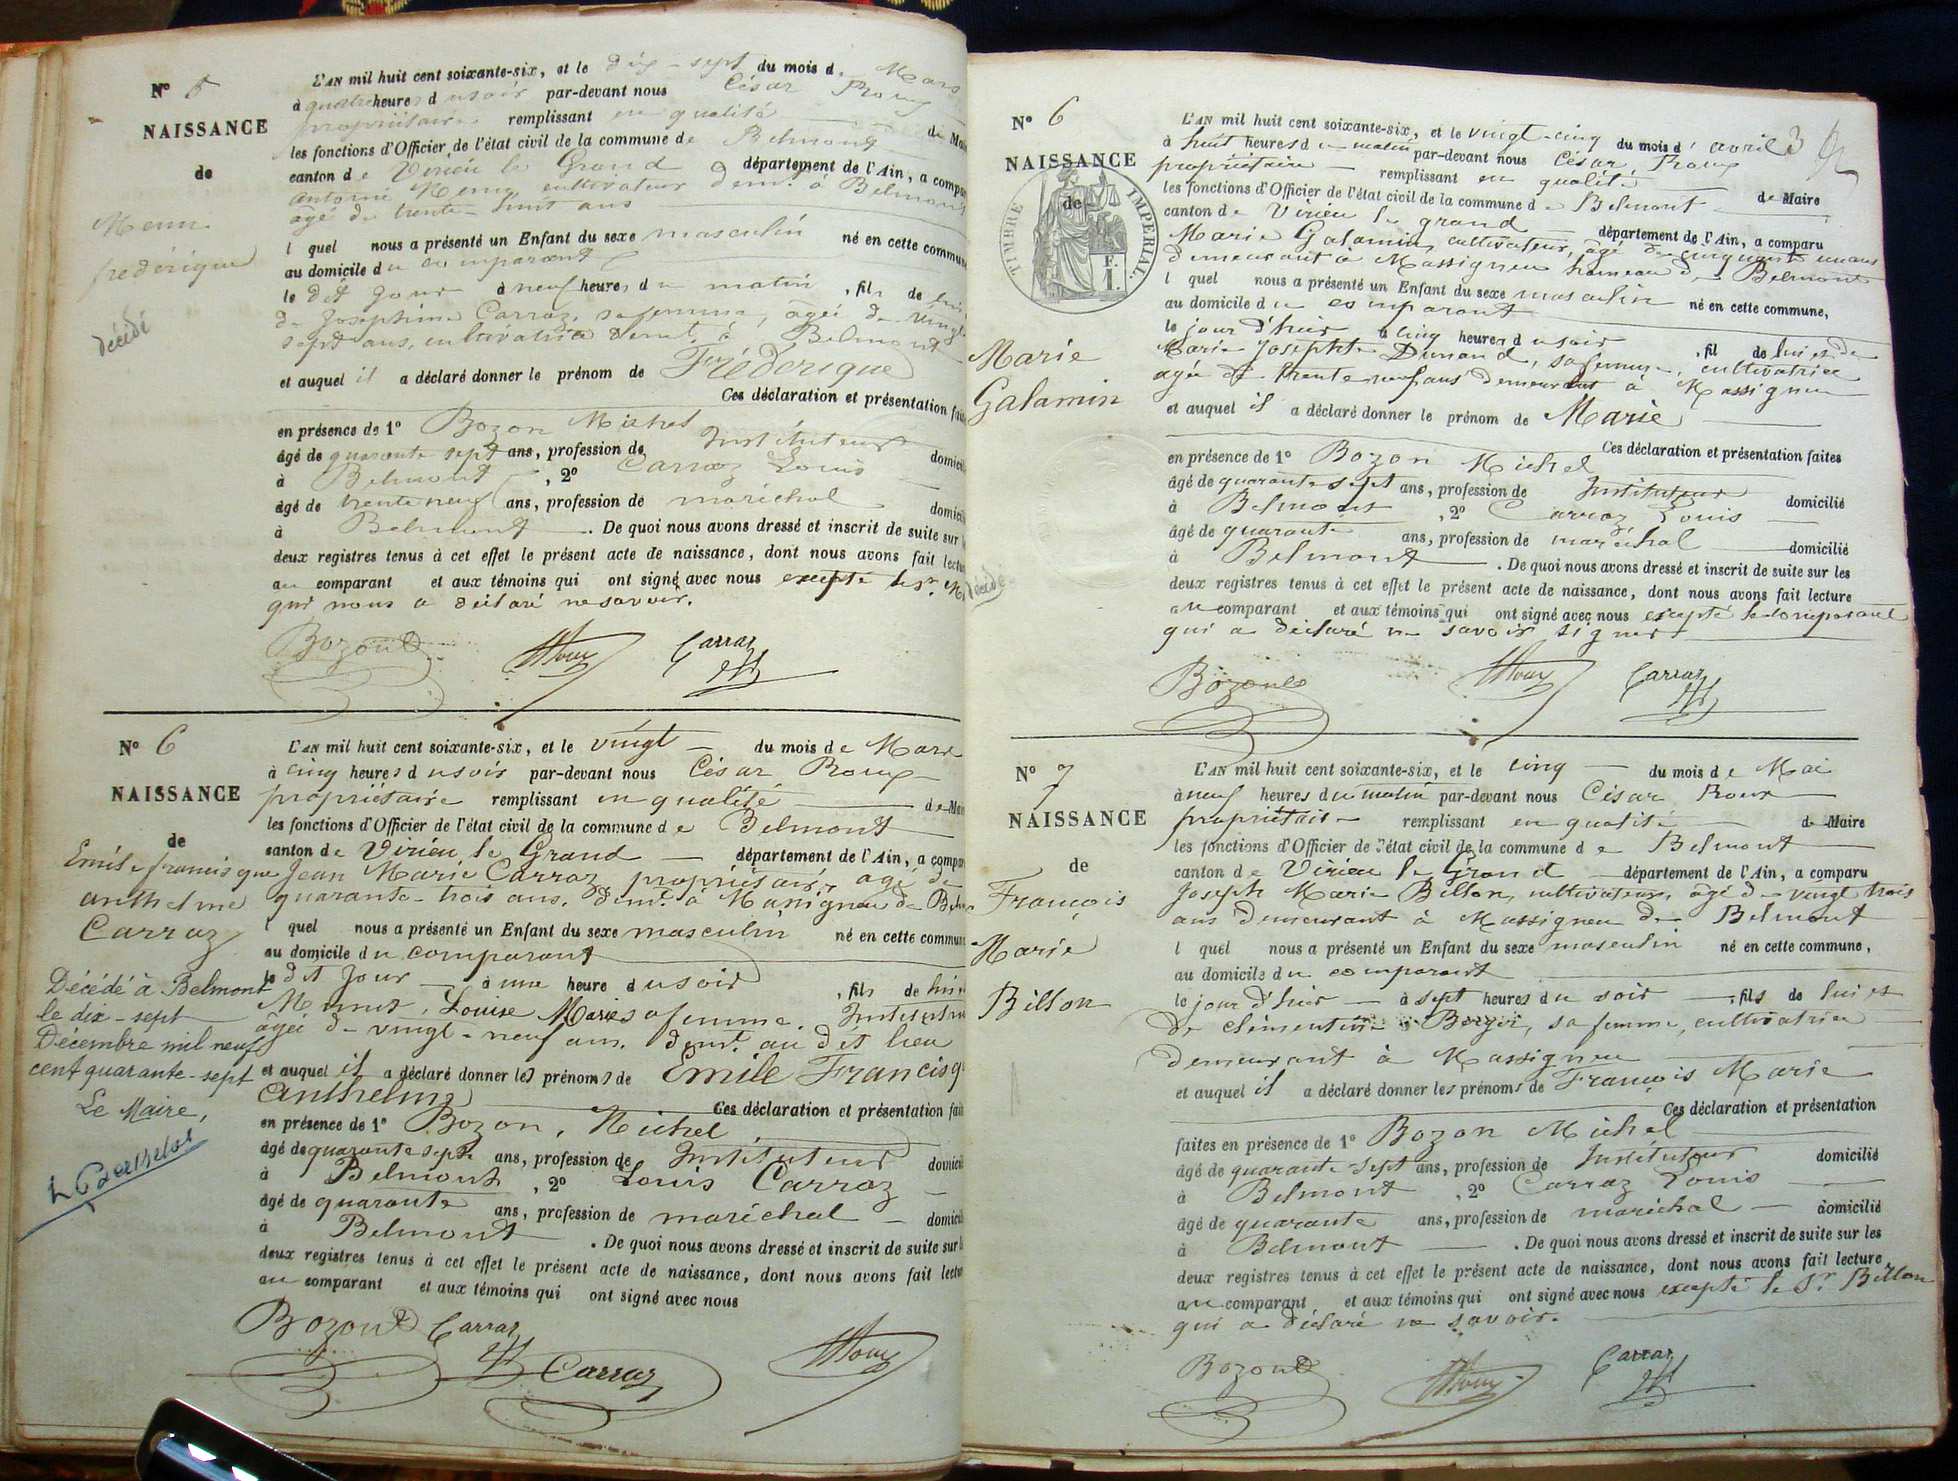 N° 5
NAISSANCE
de
Menu
frédérique
décédé
L'AN mil huit cent soixante-six, et le dix-sept du mois de Mars
à quatre heures du soir par-devant nous César Roux
propriétaire remplissant en qualité de Maire
les fonctions d'Officier de l'état civil de la commune de Belmont
canton de Virieu le Grand département de l'Ain, a compa
antoine demt. à Belmont
âgé de trente-huit ans
lequel nous a présenté un Enfant du sexe masculin né en cette commune
au domicile du comparant
le dit jour à neuf heures du matin, fils de lui
de Josephine Carraz, sa femme, agée de vingt
sept ans, cultivatrice demt. à Belmont
et auquel il a déclaré donner le prénom de Fréderique
Ces déclaration et présentation faites
en présence de 1° Bozon Michel
âgé de quarante sept ans, profession de Instituteur domicilié
à Belmont, 2° Carraz Louis
âgé de trente neuf ans, profession de maréchal domicilié
à Belmont. De quoi nous avons dressé et inscrit de suite sur
deux registres tenus à cet effet le présent acte de naissance, dont nous avons fait lecture
au comparant et aux témoins qui ont signé avec nous excepté le sr. M
qui nous a déclaré ne savoir.
Bozon Roux Carraz
N° 6
NAISSANCE
de
Emile francisque
anthelme
Carraz
Décédé à Belmont
le dix-sept
Décembre mil neuf
cent quarante-sept
Le Maire,
L'AN mil huit cent soixante-six, et le vingt du mois de Mars
à cinq heures du soir par-devant nous César Roux
propriétaire remplissant en qualité de Maire
les fonctions d'Officier de l'état civil de la commune de Belmont
canton de Virieu le Grand département de l'Ain, a compa
Jean Marie Carraz propriétaire, agé de
quarante-trois ans, demt. à Massignieu de Bel
lequel nous a présenté un Enfant du sexe masculin né en cette commune
au domicile du comparant
le dit jour à une heure du soir, fils de lui
Louise Marie sa femme, Institutrice
âgée de vingt-neuf ans, demt. au dit lieu
et auquel il a déclaré donner les prénoms de Emile Francisq
Anthelme Ces déclaration et présentation fait
en présence de 1° Bozon, Michel
âgé de quarante sept ans, profession de Instituteur domicilié
à Belmont, 2° Louis Carraz
âgé de quarante ans, profession de maréchal domicilié
à Belmont. De quoi nous avons dressé et inscrit de suite sur
deux registres tenus à cet effet le présent acte de naissance, dont nous avons fait lecture
au comparant et aux témoins qui ont signé avec nous
Bozon Carraz
Carraz Roux
N° 6
NAISSANCE
de
TIMBRE IMPÉRIAL.
F.
1.
Marie
Galamin
décédé
3
L'AN mil huit cent soixante-six, et le vingt-cinq du mois d'avril
à huit heures du matin par-devant nous César Roux
propriétaire remplissant en qualité de Maire
les fonctions d'Officier de l'état civil de la commune de Belmont
canton de Virieu le grand département de l'Ain, a comparu
Marie Galamin, cultivateur, âgé de cinquante un ans
demeurant à Massignieu hameau de Belmont
lequel nous a présenté un Enfant du sexe masculin né en cette commune,
au domicile du comparant
le jour d'hier à cinq heures du soir, fil de lui et de
Marie Josephte Dunand, sa femme, cultivatrice
agée de trente neuf ans demeurant à Massignieu
et auquel il a déclaré donner le prénom de Marie
Ces déclaration et présentation faites
en présence de 1° Bozon Michel
âgé de quarante sept ans, profession de Instituteur domicilié
à Belmont, 2° Carraz Louis
âgé de quarante ans, profession de maréchal domicilié
à Belmont. De quoi nous avons dressé et inscrit de suite sur les
deux registres tenus à cet effet le présent acte de naissance, dont nous avons fait lecture
au comparant et aux témoins qui ont signé avec nous excepté le comparant
qui a déclaré ne savoir signer
Bozon Roux Carraz
N° 7
NAISSANCE
de
François
Marie
Billon
L'AN mil huit cent soixante-six, et le cinq du mois de Mai
à neuf heures du matin par-devant nous César Roux
propriétaire remplissant en qualité de Maire
les fonctions d'Officier de l'état civil de la commune de Belmont
canton de Virieu le Grand département de l'Ain, a comparu
Joseph Marie Billon, cultivateur, âgé de vingt trois
ans demeurant à Massignieu de Belmont
lequel nous a présenté un Enfant du sexe masculin né en cette commune,
au domicile du comparant
le jour d'hier à sept heures du soir, fils de lui et
de Clémentine Berger, sa femme, cultivatrice
demeurant à Massignieu
et auquel il a déclaré donner les prénoms de François Marie
Ces déclaration et présentation
faites en présence de 1° Bozon Michel
âgé de quarante-sept ans, profession de Instituteur domicilié
à Belmont, 2° Carraz Louis
âgé de quarante ans, profession de maréchal domicilié
à Belmont. De quoi nous avons dressé et inscrit de suite sur les
deux registres tenus à cet effet le présent acte de naissance, dont nous avons fait lecture
au comparant et aux témoins qui ont signé avec nous excepté le Sr Billon
qui a déclaré ne savoir.
Bozon Roux Carraz